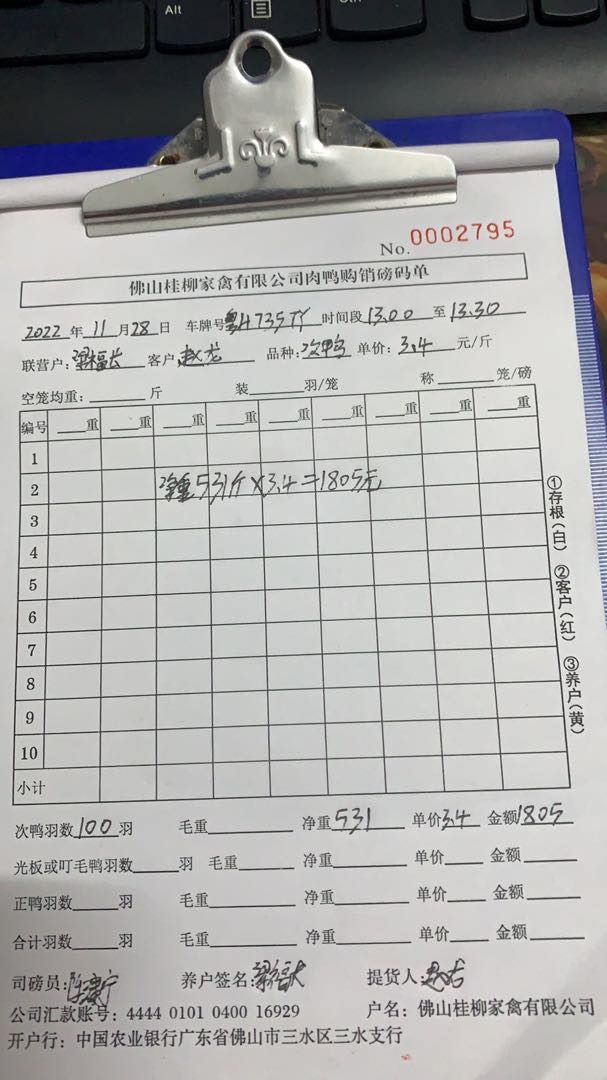 Alt
No. 0002795
佛山桂柳家禽有限公司肉鸭购销磅码单
2022 年 11 月 28 日 车牌号 粤H735TY 时间段 13.00 至 13.30
联营户: 客户: 赵龙 品种: 次鸭 单价: 3.4 元/斤
空笼均重: 斤 装 羽/笼 称 笼/磅
编号 重 重 重 重 重 重 重 重 重
1
2 净重531斤×3.4=1805元
3
4
5
6
7
8
9
10
小计
①存根(白) ②客户(红) ③养户(黄)
次鸭羽数 100 羽 毛重 净重 531 单价 3.4 金额 1805
光板或叮毛鸭羽数 羽 毛重 净重 单价 金额
正鸭羽数 羽 毛重 净重 单价 金额
合计羽数 羽 毛重 净重 单价 金额
司磅员: 养户签名: 提货人: 赵龙
公司汇款账号: 4444 0101 0400 16929 户名: 佛山桂柳家禽有限公司
开户行: 中国农业银行广东省佛山市三水区三水支行